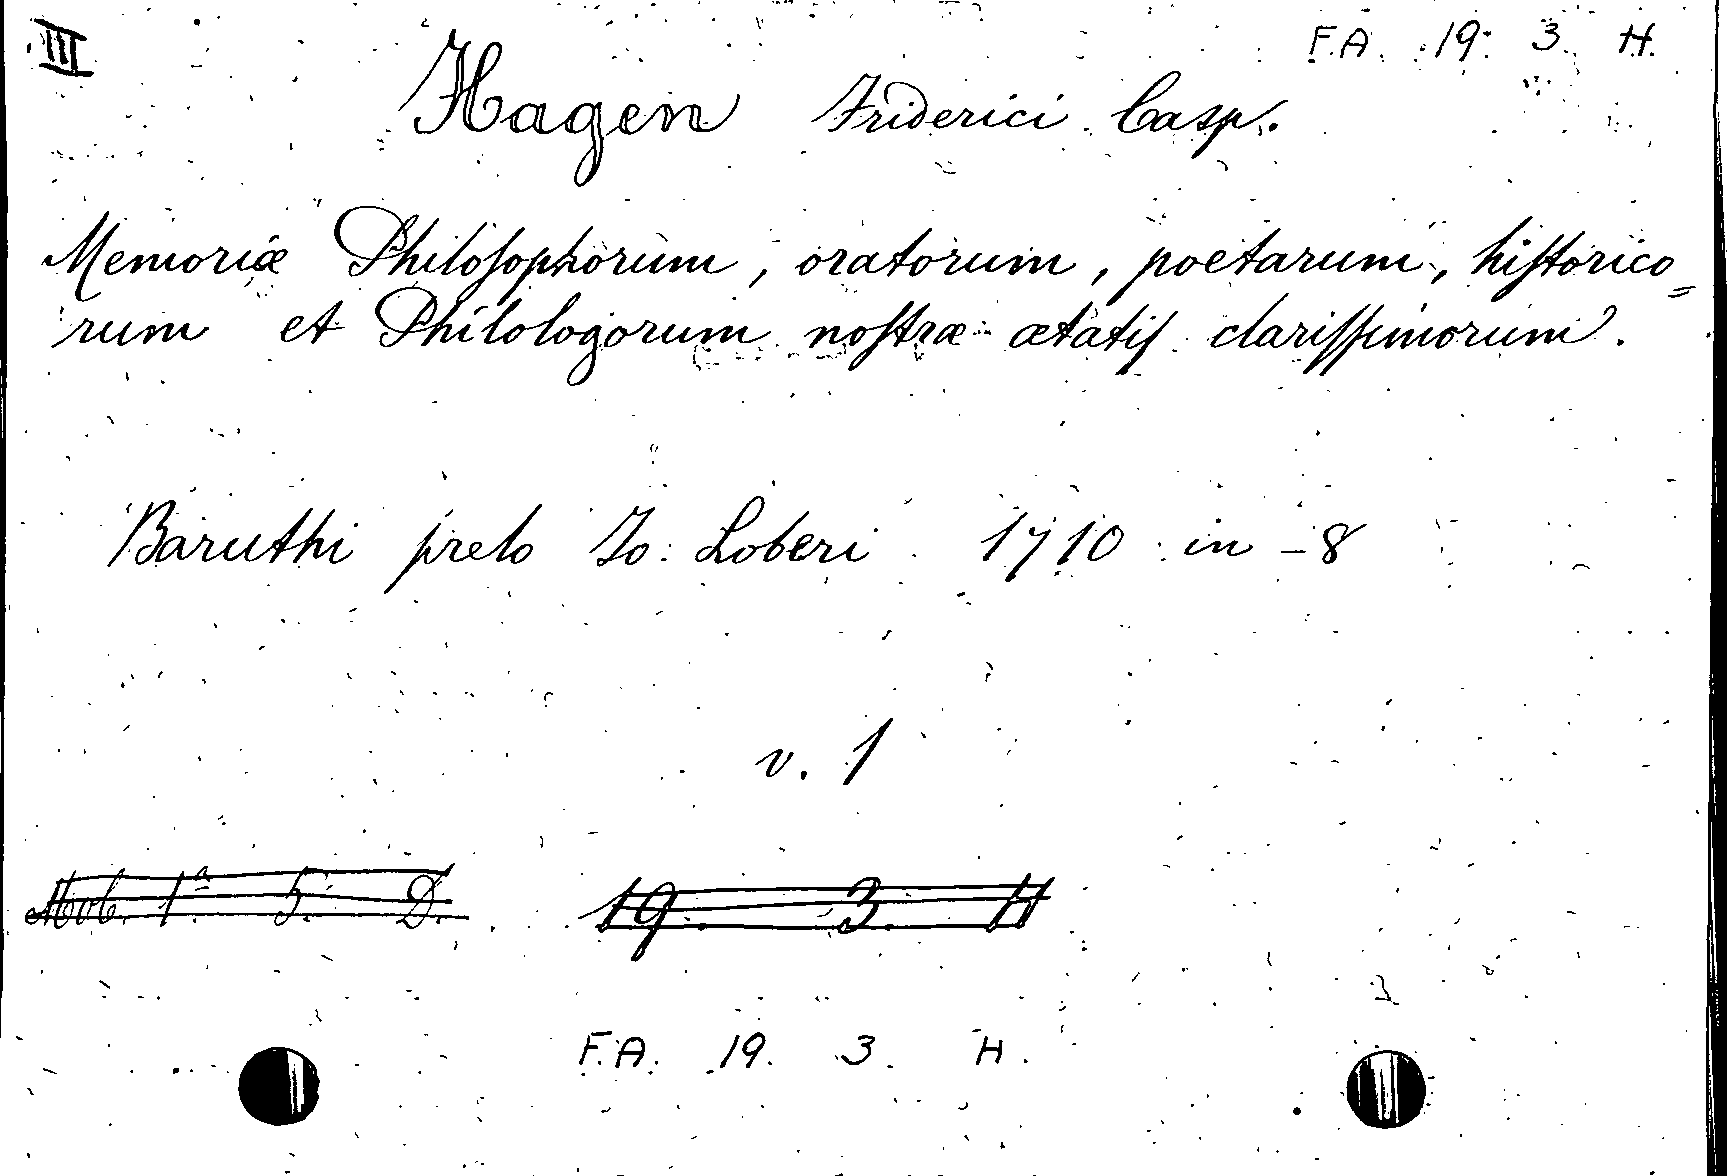 III F.A. 19. 3. H.
Hagen Friderici Casp.
Memoriæ Philoſophorum, oratorum, poetarum, hiſtorico=
rum et Philologorum noſtræ ætatiſ clariſſimorum.
Baruthi prelo Jo: Loberi 1710 in-8
v. 1
Mob. 1ª 5. D. 19. 3. H
F.A. 19. 3. H.